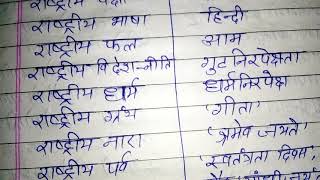 राष्ट्रीय भाषा हिन्दी
राष्ट्रीय फल आम
राष्ट्रीय विदेश-नीति गुट निरपेक्षता
राष्ट्रीय धर्म धर्मनिरपेक्ष
राष्ट्रीय ग्रंथ 'गीता'
राष्ट्रीय नारा 'श्रमेव जयते'
राष्ट्रीय पर्व 'स्वतंत्रता दिवस,